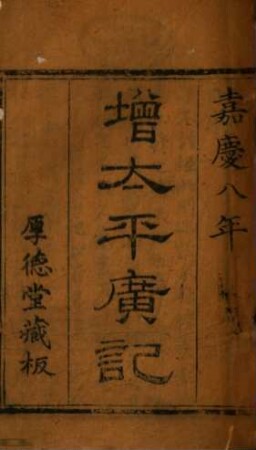 嘉慶八年
增太平廣記
厚德堂藏板